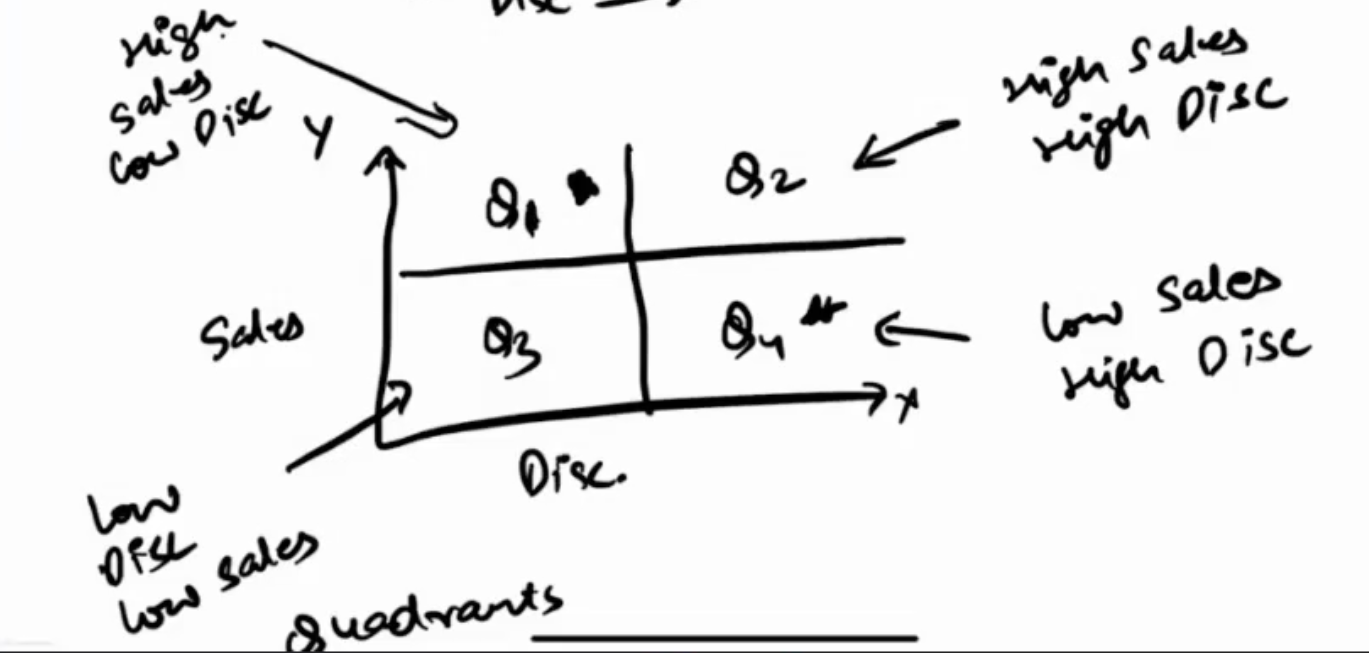 Disc
High
Sales
Low Disc
Y
High Sales
High Disc
Q1
Q2
Sales
Q3
Q4
Low Sales
High Disc
X
Disc.
Low
Disc
Low Sales
Quadrants